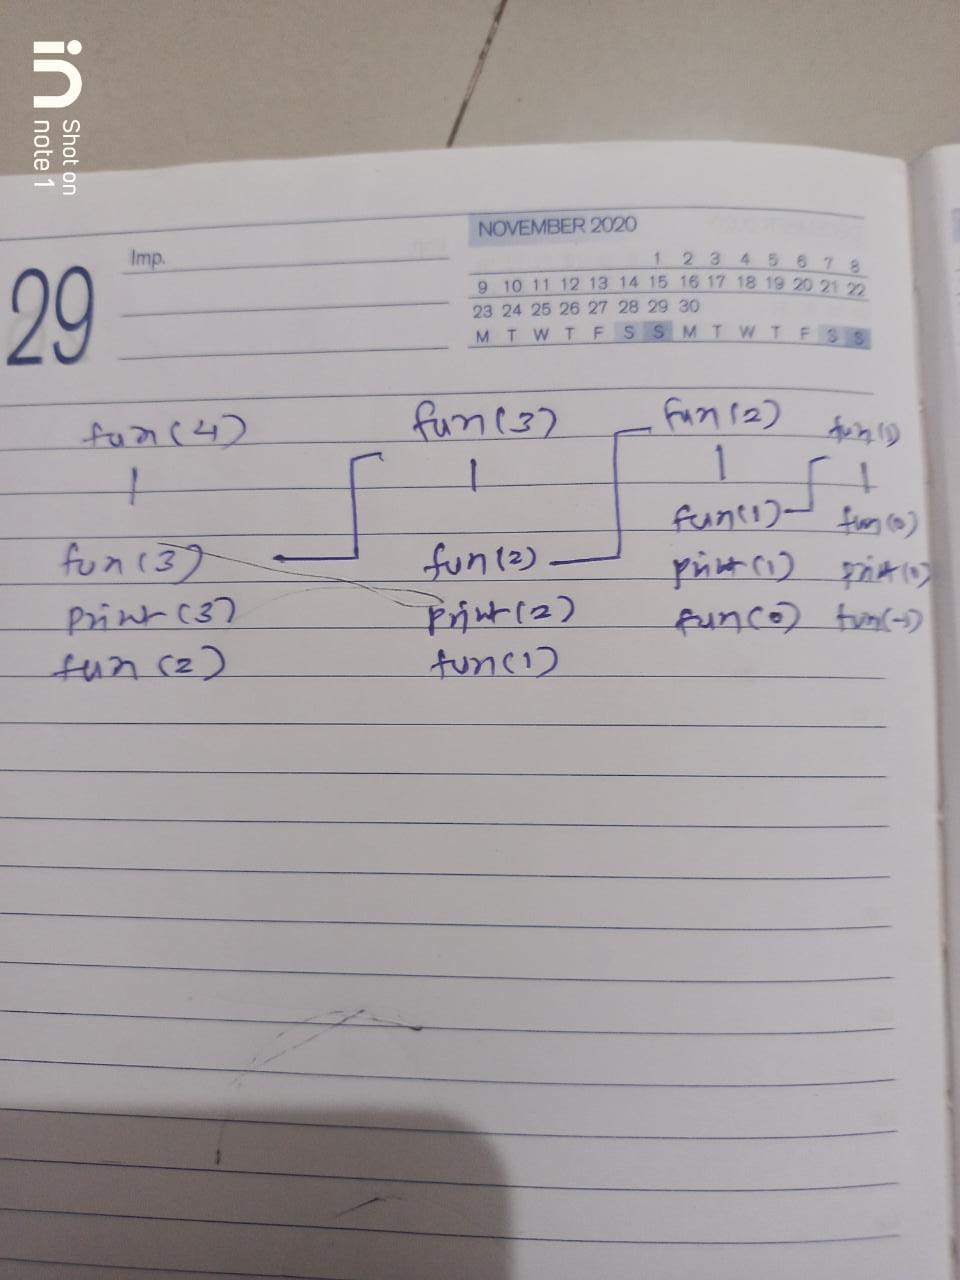 in
Shot on
note 1
29
Imp.
NOVEMBER 2020
1 2 3 4 5 6 7 8
9 10 11 12 13 14 15 16 17 18 19 20 21 22
23 24 25 26 27 28 29 30
M T W T F S S M T W T F S S
fun(4) fun(3) fun(2) fun(1)
fun(1) fun(0)
fun(3) fun(2) print(1) print(0)
print(3) print(2) fun(0) fun(-1)
fun(2) fun(1)